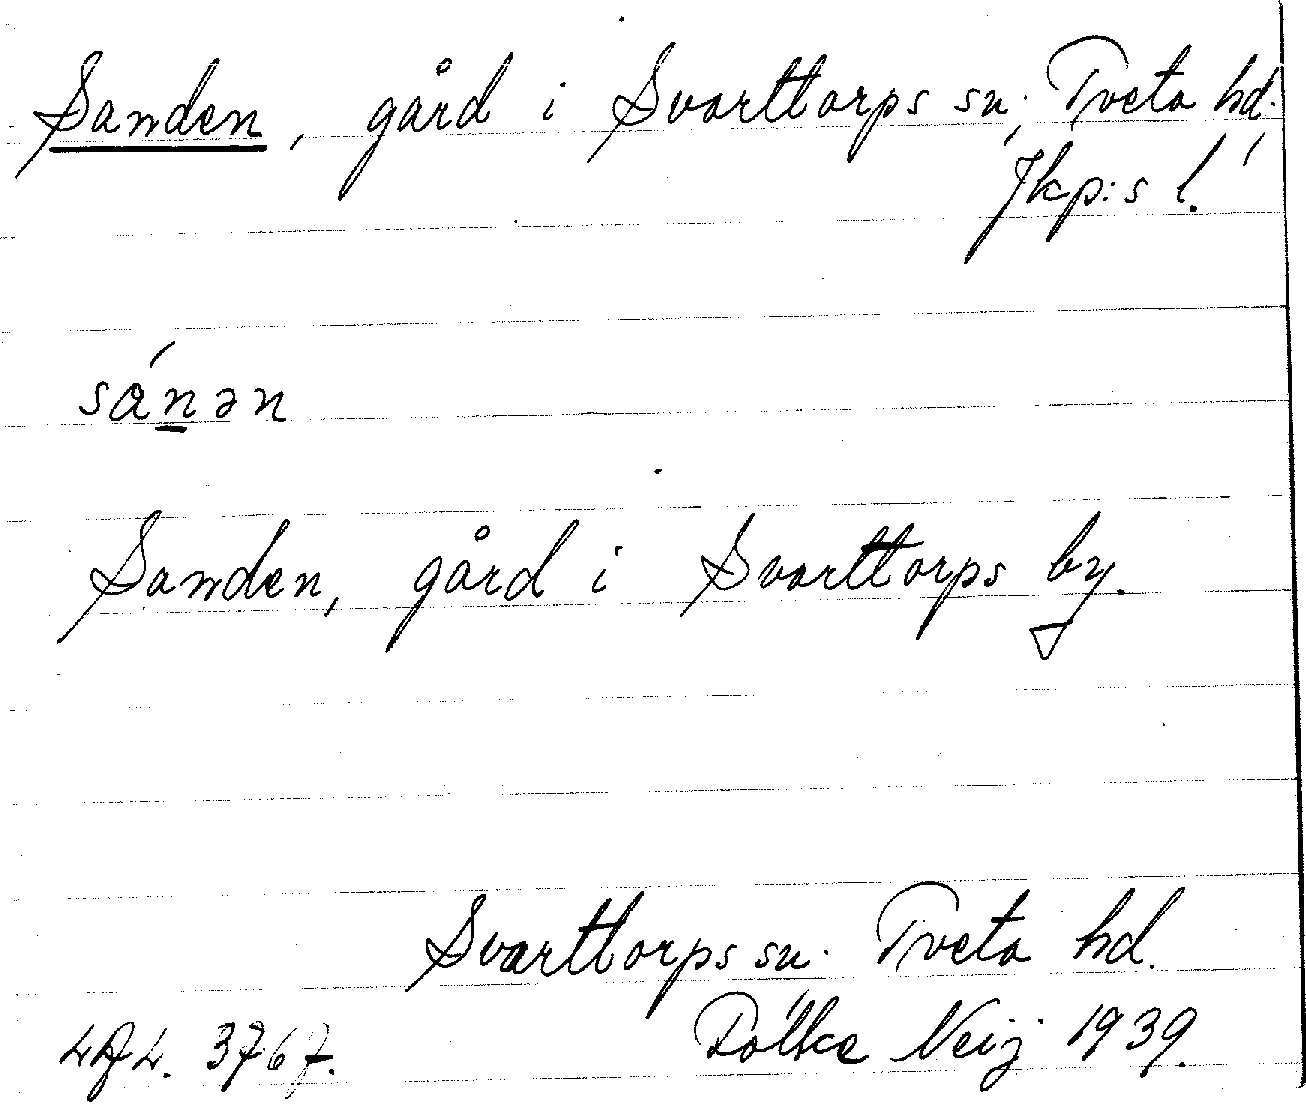 Sanden, gård i Svarttorps sn, Tveta hd.,
Jkp:s l.
sánən
Sanden, gård i Svarttorps by.
Svarttorps sn. Tveta hd.
3767. Folke Neij 1939.